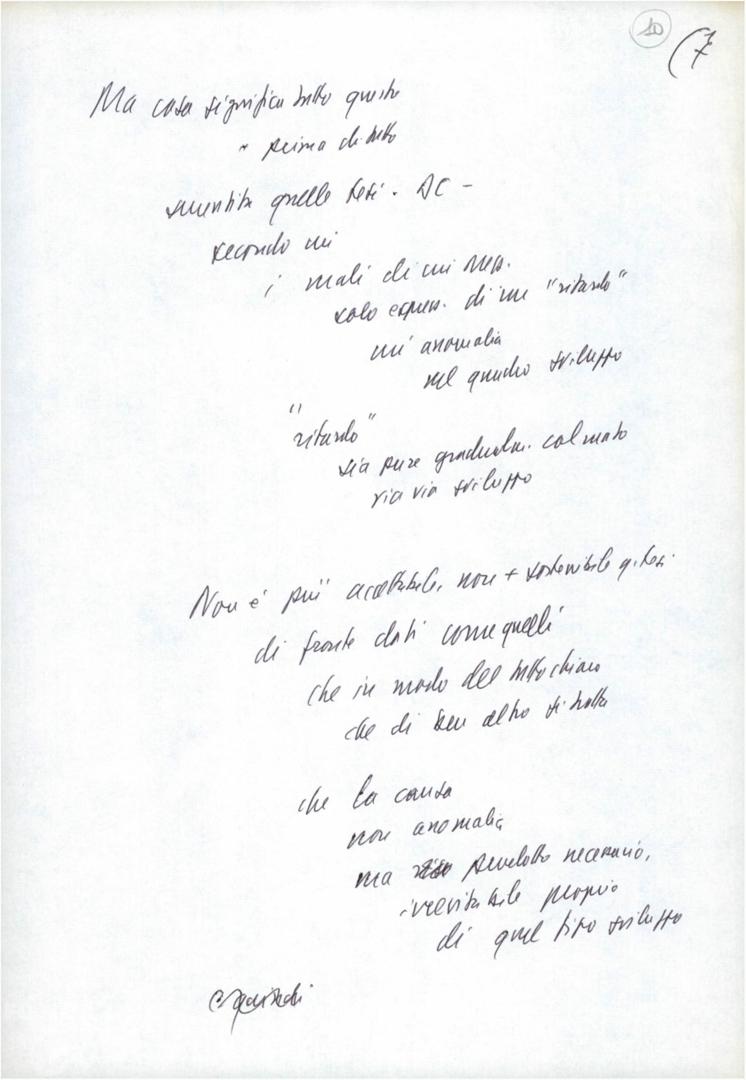 10
(7
Ma cosa significa tutto questo
" prima di tutto
smentite quelle tesi. DC -
secondo cui
i mali di cui Mezz.
solo espress. di un "ritardo"
un' anomalia
nel quadro sviluppo
"ritardo"
sia pure gradualm. colmato
via via sviluppo
Non è più accettabile, non + sostenibile q. tesi
di fronte dati come quelli
che in modo del tutto chiaro
che di ben altro si tratta
che la causa
non anomalia
ma prodotto necessario,
inevitabile proprio
di quel tipo sviluppo
E quindi